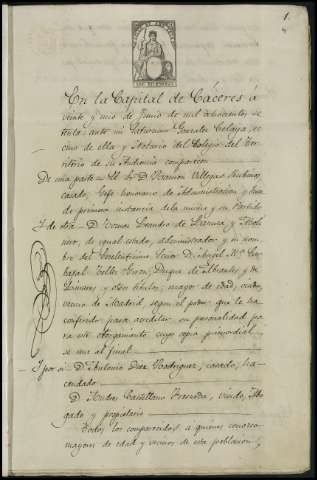 1.
En la Capital de Cáceres á
veinte y seis de Junio de mil ochocientos se
tenta, ante mi Saturnino Gonzalez Celaya, ve
cino de ella y Notario del Colegio del Ter
ritorio de su Audiencia comparecen
De una parte = El Sr. D. Ramon Villegas
casado, Gefe honorario de Administracion y Juez
de primera instancia de la misma y su Partido
Y de otra = D. Leandro de
de igual estado, administrador y en nom
bre del Excelentisimo Señor D. Angel Mª
Duque de Abrantes y de
Linares y otros titulos, mayor de edad,
vecino de Madrid segun el poder que le ha
conferido para acreditar su personalidad pa
ra este otorgamiento cuya copia primordial
se une al final
Y por si = D. Antonio Diaz Rodriguez, casado, ha
cendado
D. Castellano viudo, Abo
gado y propietario
Todos los comparecidos á quienes conozco
mayores de edad y vecinos de esta poblacion